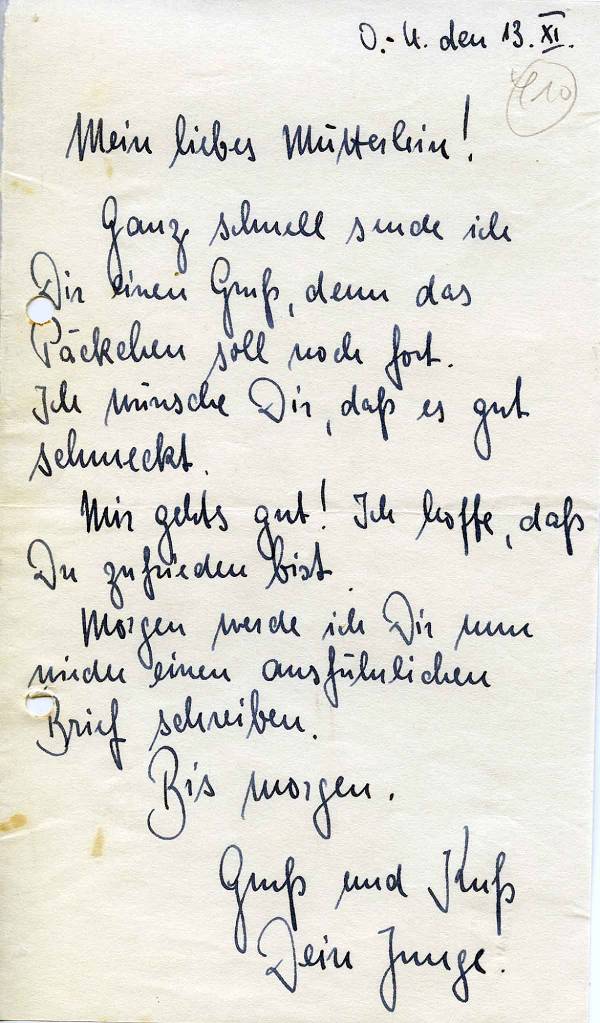 O.-U. den 13. XI.
410
Mein liebes Mütterlein!
Ganz schnell sende ich
Dir einen Gruß, denn das
Päckchen soll noch fort.
Ich wünsche Dir, daß es gut
schmeckt.
Mir gehts gut! Ich hoffe, daß
Du zufrieden bist.
Morgen werde ich Dir nun
wieder einen ausführlichen
Brief schreiben.
Bis morgen.
Gruß und Kuß
Dein Junge.